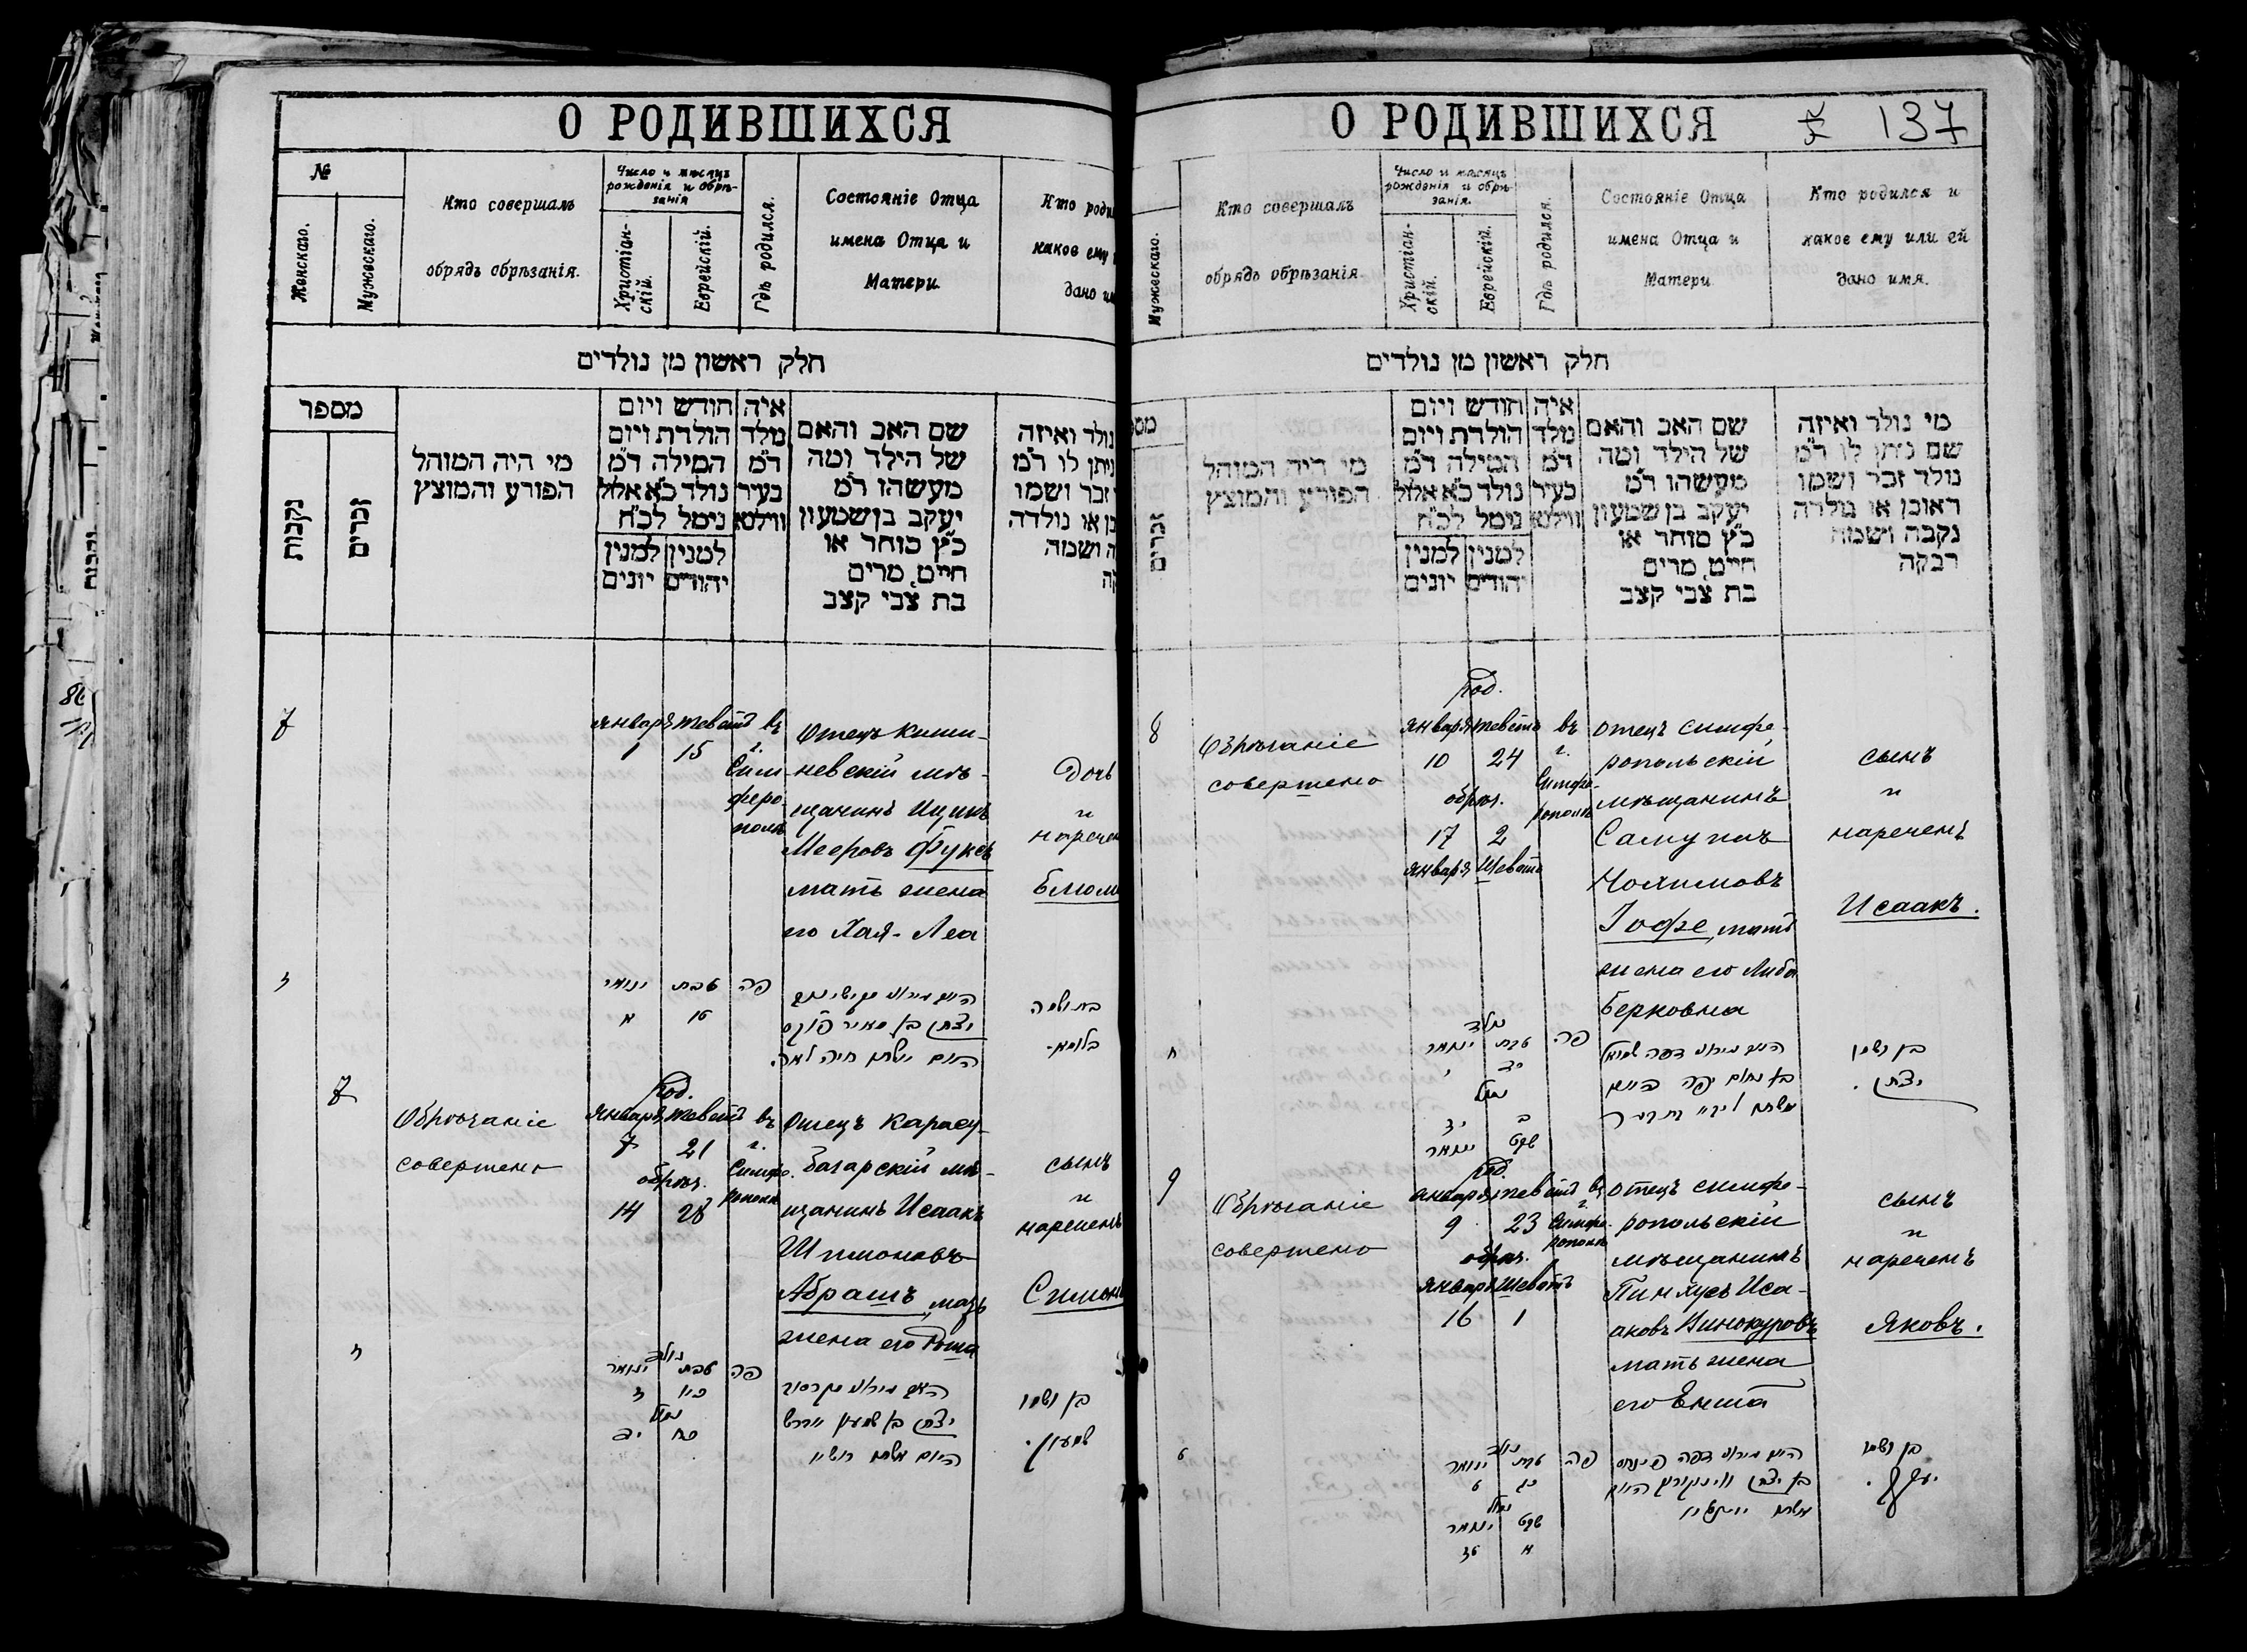 О РОДИВШИХСЯ
№
Женскаго.
Мужескаго.
Кто совершалъ
обрядъ обрѣзанія.
Число и мѣсяцъ
рожденія и обрѣ-
занія
Христіан-
скій.
Еврейскій.
Гдѣ родился.
Состояніе Отца
имена Отца и
Матери
Кто роди
какое ему
дано им
חלק ראשון מן נולדים
מספר
נקבות
זכרים
מי היה המוהל
הפורע והמוצץ
חודש ויום
הולדת ויום
המילה ד״מ
נולד כ״א אלול
נימל לכ״ח
למנין למנין
יהודים יונים
איה
נולד
ד״מ
בעיר
ווילנא
שם האב והאם
של הילד ומה
מעשהו ד״מ
יעקב בן שמעון
כ״ץ סוחר או
חייט מרים
בת צבי קצב
נולד ואיזה
ניתן לו ד״מ
זכר ושמו
בן או נולדה
ה ושמה
קה
7
января теветъ въ
1 15 г.
Сим
феро
поль
Отецъ Киши-
невскій мѣ-
щанинъ Ицикъ
Мееровъ Фуксъ
мать жена
его Хая-Леа
Дочь
и
наречен
Блюм
ינואר טבת פה
א טו
7
Обрѣзаніе
совершено
Род.
января теветъ въ
7 21 г.
обрѣз.
14 28
Симфе-
рополь
Отецъ Карасу-
базарскій мѣ-
щанинъ Исаакъ
Шимоновъ
Абрашъ, мать
жена его Роша
сынъ
и
нареченъ
Симонъ
נולד
ינואר טבת פה
בן ושמו
שמעון.
О РОДИВШИХСЯ
137
Мужескаго.
Кто совершалъ
обрядъ обрѣзанія.
Число и мѣсяцъ
рожденія и обрѣ-
занія.
Христіан-
скій.
Еврейскій.
Гдѣ родился.
Состояніе Отца
имена Отца и
Матери
Кто родился и
какое ему или ей
дано имя.
חלק ראשון מן נולדים
מס
זכרים
מי היה המוהל
הפורע והמוצץ
חודש ויום
הולדת ויום
המילה ד״מ
נולד כ״א אלול
נימל לכ״ח
למנין למנין
יהודים יונים
איה
נולד
ד״מ
בעיר
ווילנא
שם האב והאם
של הילד ומה
מעשהו ד״מ
יעקב בן שמעון
כ״ץ סוחר או
חייט מרים
בת צבי קצב
מי נולד ואיזה
שם ניתן לו ד״מ
נולד זכר ושמו
ראובן או נולדה
נקבה ושמה
רבקה
8
Обрѣзаніе
совершено
Род.
января теветъ въ
10 24 г.
обрѣз.
17 2
января Шеватъ
Симфе-
рополь
Отецъ симфе-
ропольскій
мѣщанинъ
Самуилъ
Іофе, мать
жена его Либа
Берковна
сынъ
и
нареченъ
Исаакъ.
נולד
ינואר טבת פה
ח
בן ושמו
יצחק.
9
Обрѣзаніе
совершено
Род.
января теветъ въ
9 23 г.
обрѣз.
январь Шеватъ
16 1
Симфе-
рополь
Отецъ симфе-
ропольскій
мѣщанинъ
Пинхусъ Иса-
аковъ Винокуровъ
мать жена
его Ента
сынъ
и
нареченъ
Яковъ.
נולד
ינואר טבת פה
ט כג
בן ושמו
יעקב.